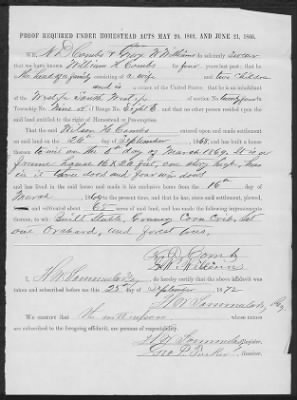 PROOF REQUIRED UNDER HOMESTEAD ACTS MAY 20, 1862, AND JUNE 21, 1866.
We, N D Combs & Geo. W Williams do solemnly swear
that we have known William H Combs for four years last past; that he is
the head of a family consisting of a wife and two children
and is a citizen of the United States; that he is an inhabitant
of the West ½ South West ¼ of section No. twenty four in
Township No. Nine S. of Range No. Eight E and that no other person resided upon the said
land entitled to the right of Homestead or Pre-emption.
That the said William H Combs entered upon and made settlement
on said land on the 20th day of September 1868, and has built a house
thereon to wit on the 8th day of March 1869 It is a
frame house 16 x 20 feet, one story high, has
in it three doors and four windows
and has lived in the said house and made it his exclusive home from the 16th day of
March 1869 to the present time, and that he has, since said settlement, plowed,
and cultivated about 65 acres of said land, and has made the following improvements
thereon, to wit: built Stable, Corn Crib, Set
out Orchard, and forest trees.
N. D. Combs
G W Williams
I, H W Sommers do hereby certify that the above affidavit was
taken and subscribed before me this 25th day of September 1872
H W Sommers
WE CERTIFY that whose names
are subscribed to the foregoing affidavit, are persons of respectability.
H W Sommers Register.
Geo P. Tucker Receiver.